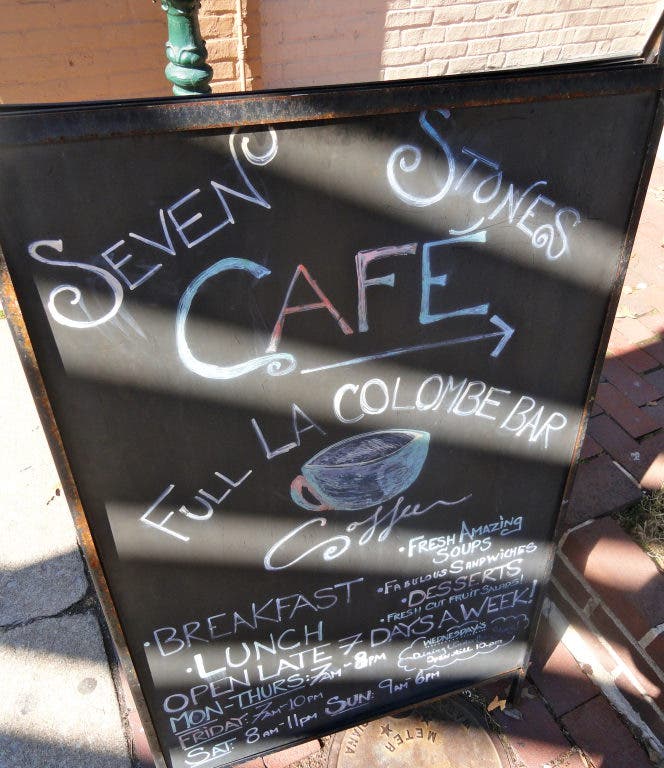 SEVEN STONES
CAFÉ
FULL LA COLOMBE BAR
Coffee
• FRESH AMAZING
SOUPS
• FABULOUS SANDWICHES
• DESSERTS
• FRESH CUT FRUIT SALADS!
• BREAKFAST
• LUNCH
OPEN LATE 7 DAYS A WEEK!
MON-THURS: 7AM-8PM
FRIDAY: 7AM-10PM
SAT: 8AM-11PM SUN: 9AM-6PM
WEDNESDAY'S
OPEN TILL 10PM
METER